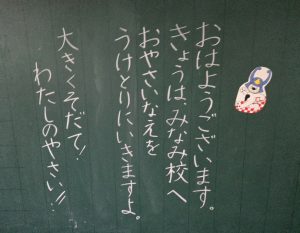 おはようございます。
きょうは、みなみ校へ
おやさいなえを
うけとりにいきますよ。
大きくそだて!
わたしのやさい!!